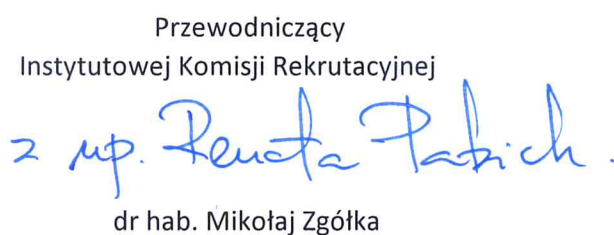 Przewodniczący
Instytutowej Komisji Rekrutacyjnej
z up. Renata
dr hab. Mikołaj Zgółka